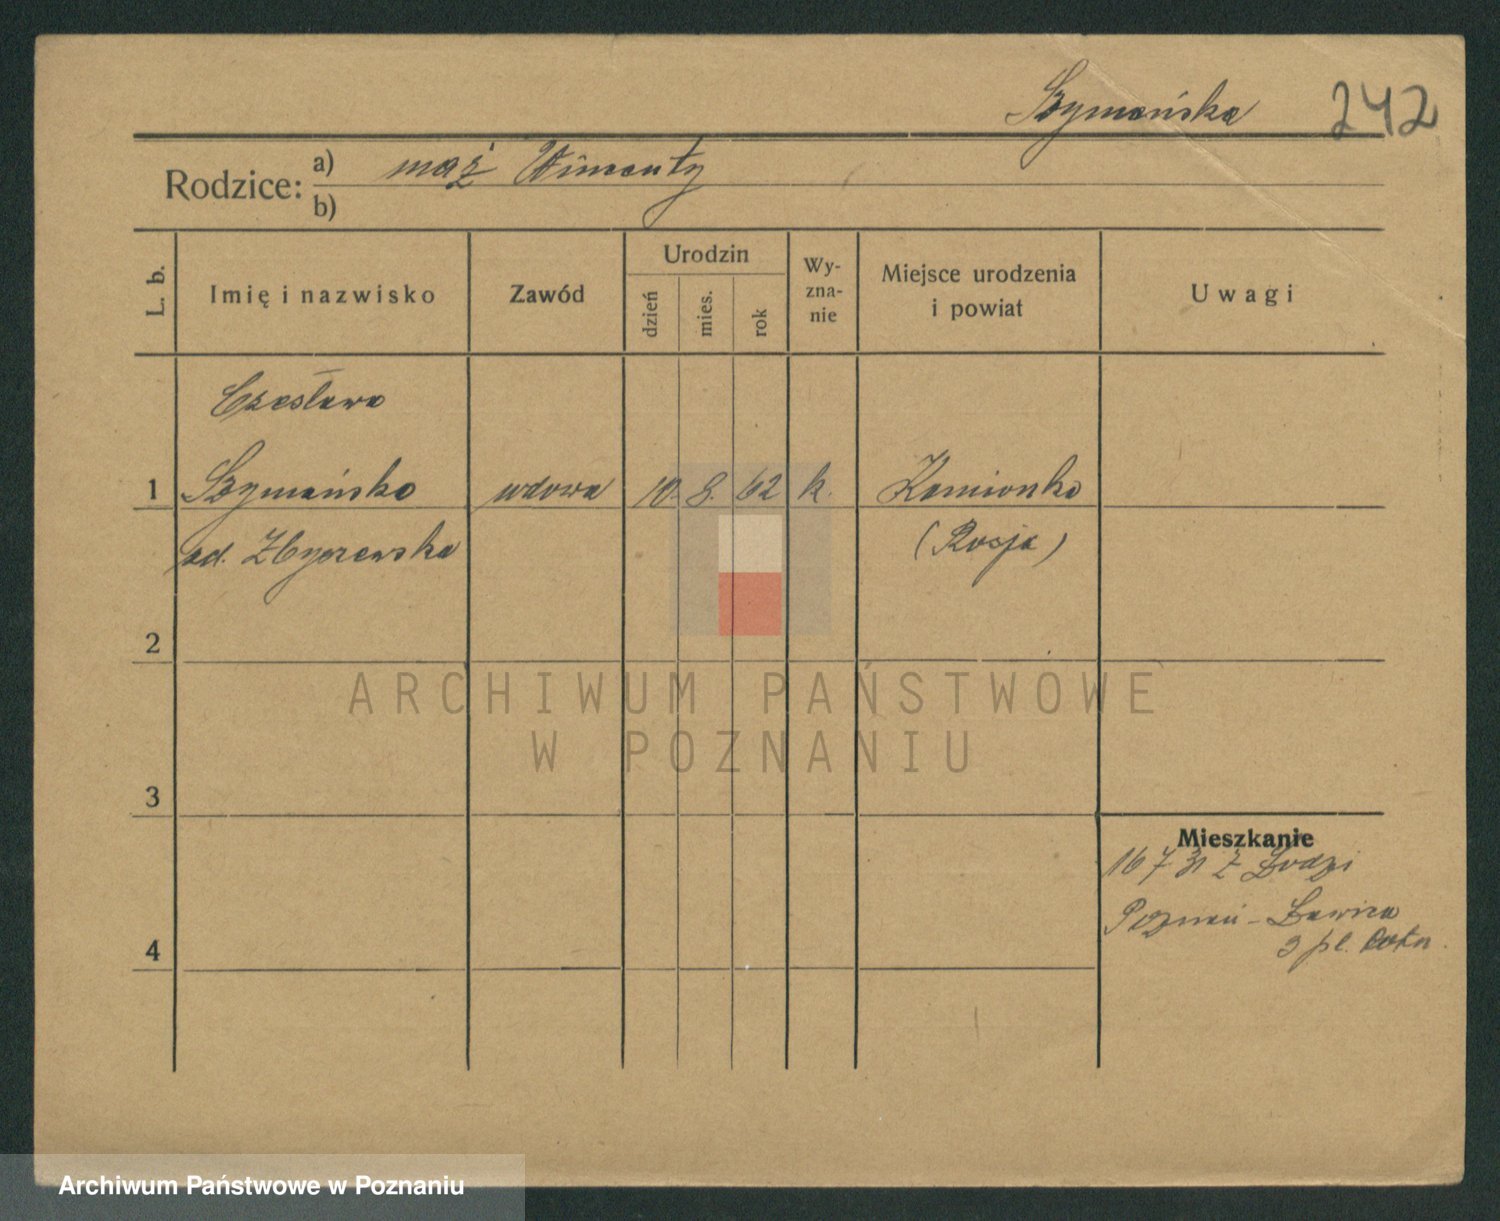 Szymańska 242
Rodzice: a) mąż Wincenty
b)
L. b. Imię i nazwisko Zawód Urodzin dzień mies. rok Wyzna-nie Miejsce urodzenia i powiat Uwagi
Czesława
1 Szymańska wdowa 10. 8. 62 k. Kamionka
od. Zbyszewska (Rosja)
2
ARCHIWUM PAŃSTWOWE
W POZNANIU
3
Mieszkanie
16 7 31 z Łodzi
Poznań - Ławica
4
3 pl.
Archiwum Państwowe w Poznaniu